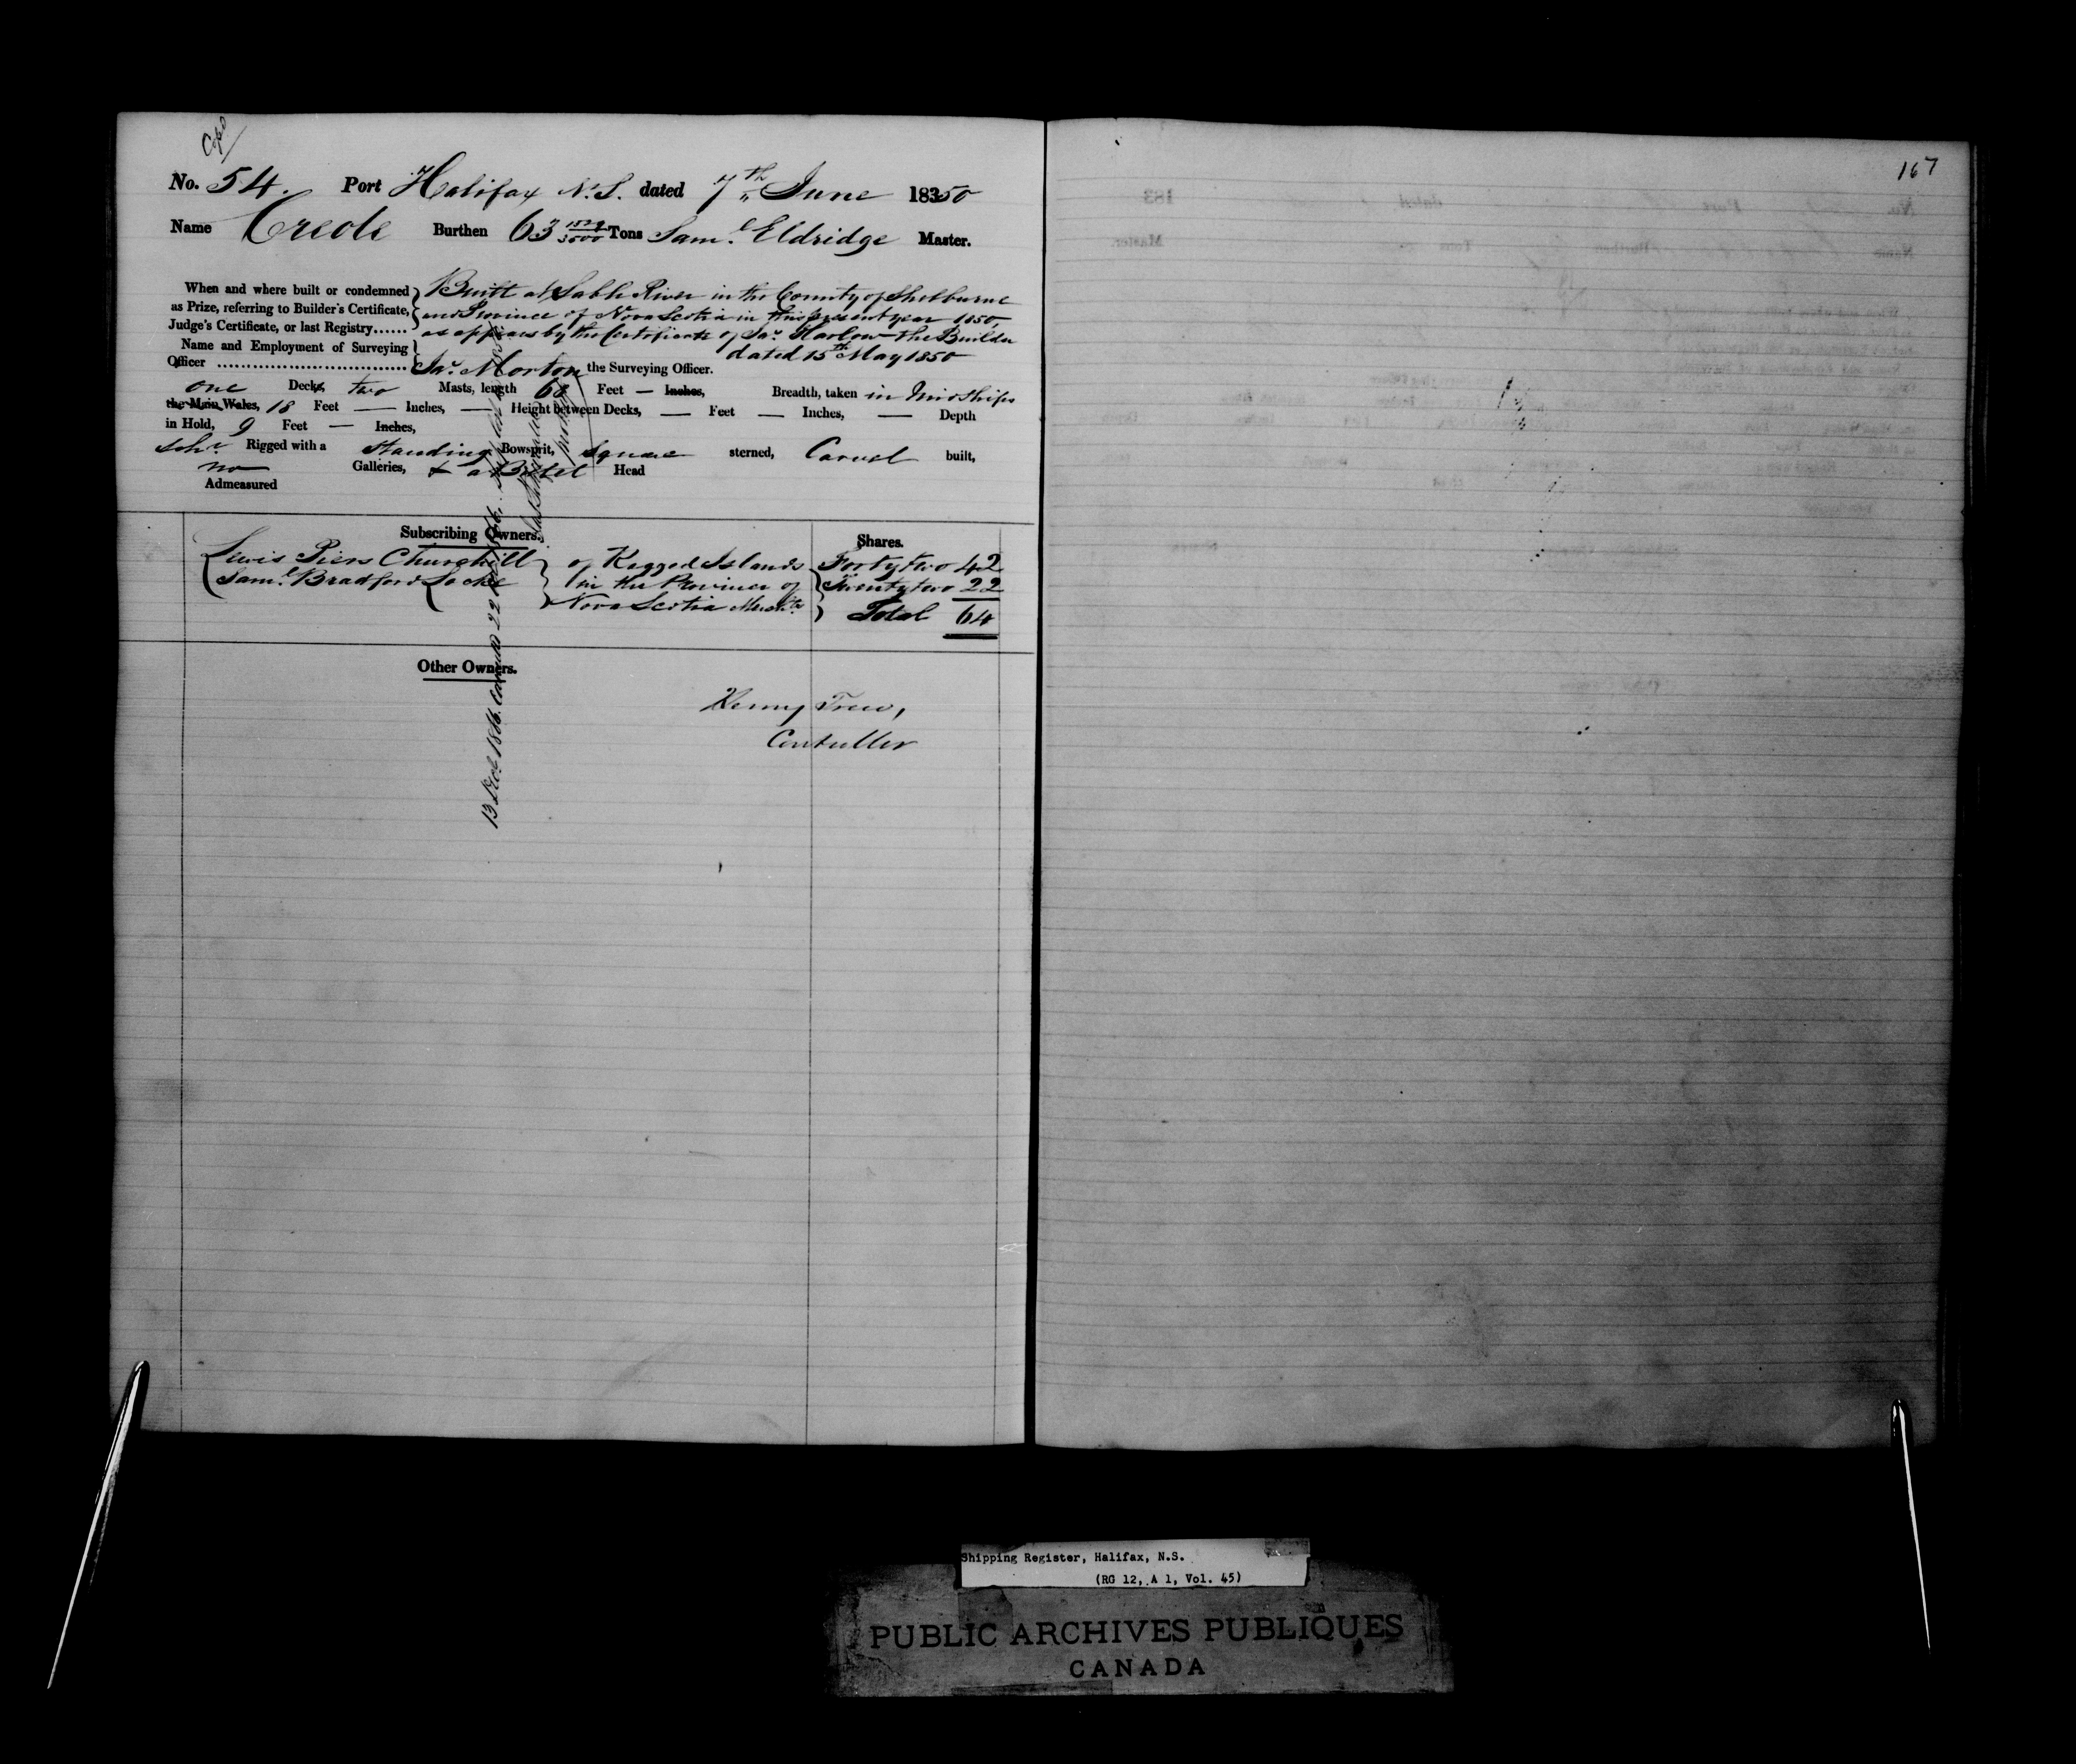 Copd
No. 54. Port Halifax N.S. dated 7th June 18350
Name Creole Burthen 63 Tons Saml Eldridge Master.
When and where built or condemned as Prize, referring to Builder's Certificate, Judge's Certificate, or last Registry......
Built at Sable River in the County of Shelburne
and Province of Nova Scotia in this present year 1850,
as appears by the Certificate of Jas. Harlow the Builder
dated 15th May 1850
Name and Employment of Surveying Officer
Jas. Morton the Surveying Officer.
one Decks, two Masts, length 68 Feet — Inches, Breadth, taken in Midships
the Main Wales, 18 Feet — Inches, — Height between Decks, — Feet — Inches, — Depth
in Hold, 9 Feet — Inches,
Schr. Rigged with a Standing Bowsprit, Square sterned, Carvel built,
no Galleries, & a Billet Head
Admeasured
Subscribing Owners. Shares.
Lewis Piers Churchill of Ragged Islands Forty two 42
Saml Bradford Locke in the Province of Twenty two 22
Nova Scotia Merchts Total 64
Other Owners.
Henny Trew,
Contuller
13 Decr 1866. Cancelled 22
167
Shipping Register, Halifax, N.S.
(RG 12, A 1, Vol. 45)
PUBLIC ARCHIVES PUBLIQUES
CANADA